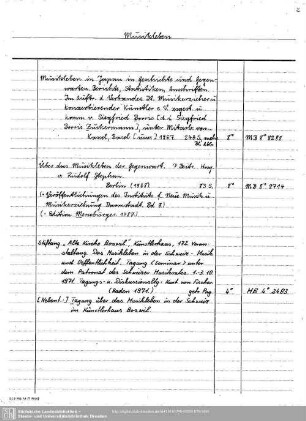 Musikleben
Musikleben in Japan in Geschichte und Gegenwart
Berichte, Statistiken, Anschriften.
Im Auftr. d. Verbandes Dt. Musikerzieher u.
konzertierender Künstler e.V.
von Siegfried Borris (d.i. Siegfried
Borris Zuckermann), unter Mitarb. von
Kassel, Basel (usw.) 1967 248 S. 8° MB 8° 8288
Über das Musikleben der Gegenwart. 7 Beitr. Hrsg.
v. Rudolf Stephan.
Berlin (1968) 83 S. 8° MB 8° 8714
(= Veröffentlichungen des Instituts f. Neue Musik u.
Musikerziehung Darmstadt. Bd 8)
(= Edition Merseburger.
Stiftung „Alte Kirche Boswil", Künstlerhaus, 172. Veran-
staltung. Das Musikleben in der Schweiz - Musik
und Öffentlichkeit. Tagung (Seminar) unter
dem Patronat des Schweizer Musikrates. 1.-3.10
1971. Tagungs- u. Diskussionsltg.: Kurt von Fischer
(Baden 1972) 4° HB 4° 3483
[Nebent.:] Tagung über das Musikleben in der Schweiz
im Künstlerhaus Boswil.